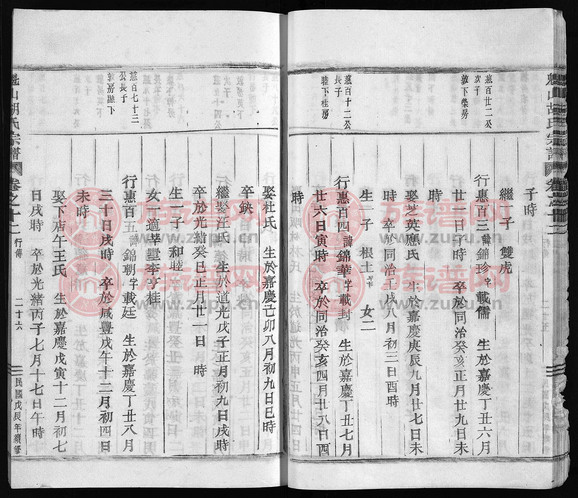 胡氏宗譜
惠百廿二公
次子
惠百十二公
長子
惠百七十三
公長子
子時
繼一子 雙虎
行惠百三諱錦珍字載儒 生於嘉慶丁丑六月
廿二日戌時 卒於同治癸亥正月廿九日未
時
娶芝英應氏 生於嘉慶庚辰九月廿七日未
時 卒於同治丁卯八月初三日酉時
生一子 根土 女二
行惠百四諱錦華字載封 生於嘉慶丁丑七月
廿六日寅時 卒於同治癸亥四月廿八日酉
時
娶杜氏 生於嘉慶己卯八月初九日巳時
卒缺
繼娶汪氏 生於道光戊子正月初九日戌時
卒於光緒癸巳正月廿一日 時
生一子 和睦
女一適莘塘李亨桂
行惠百五諱錦朝字載廷 生於嘉慶丁丑八月
三十日戌時 卒於咸豐戊午十二月初四日
未時
娶下店午王氏 生於嘉慶戊寅十二月初七
日戌時 卒於光緒丙子七月十七日午時
山胡氏宗譜
卷之十二 行傳
二十六
民國戊辰年續修